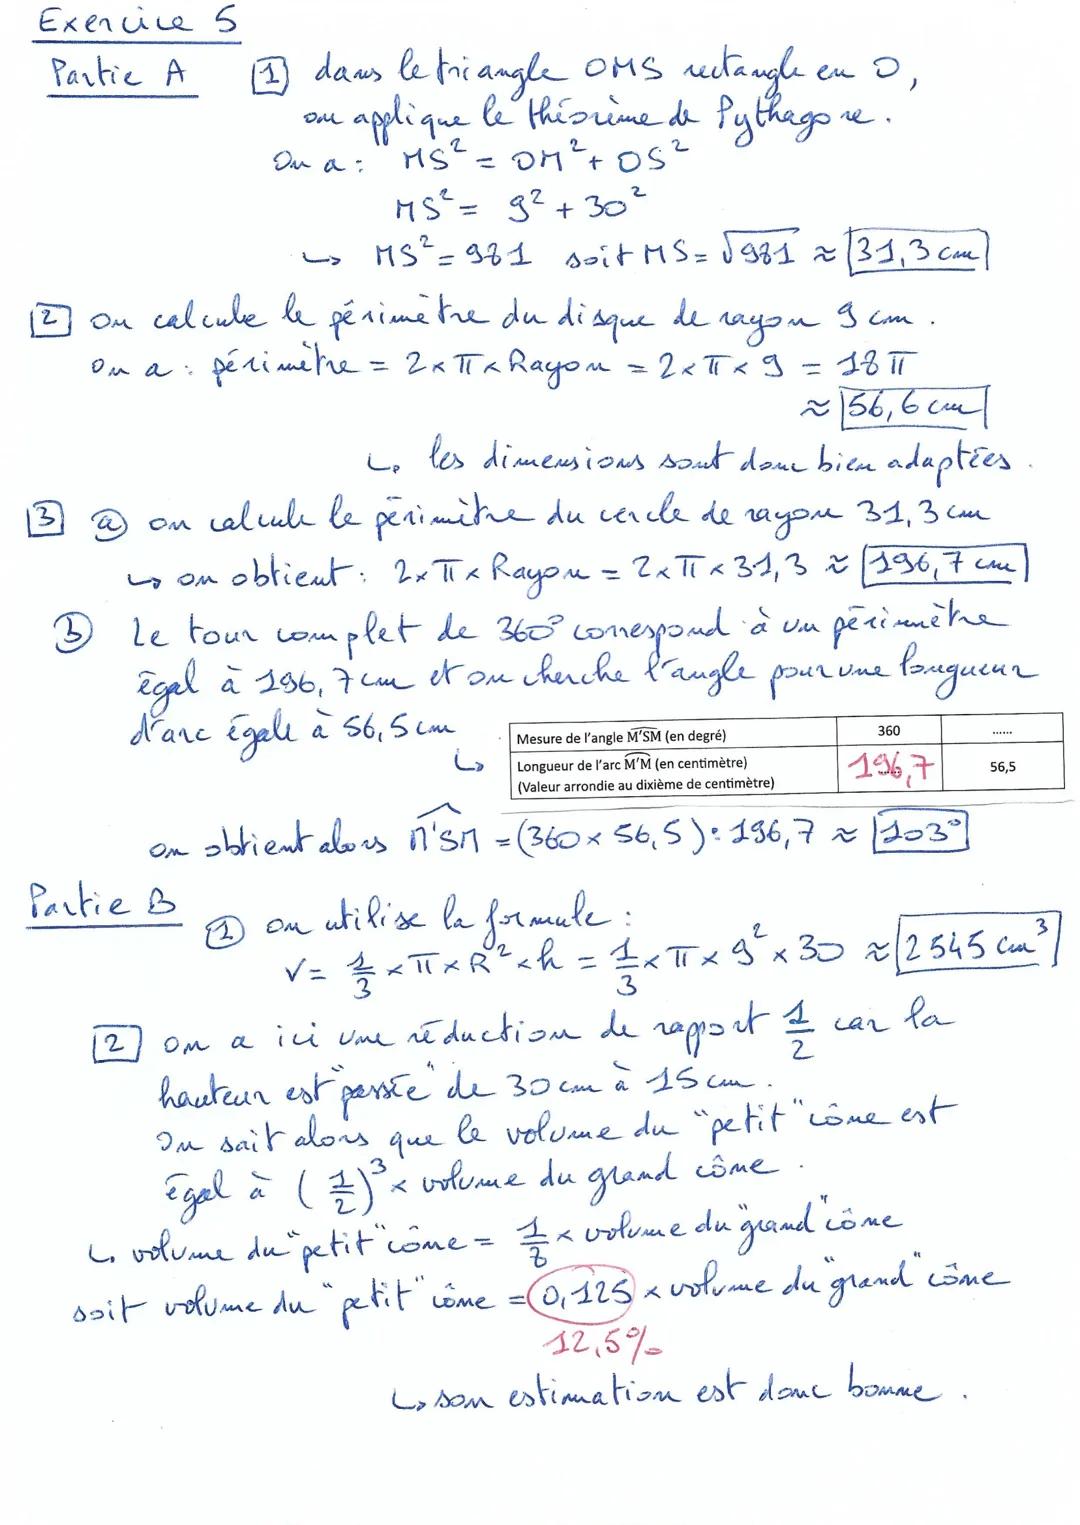 Exercice 5
Partie A 1 dans le triangle OMS rectangle en O,
on applique le théorème de Pythagore.
On a : MS² = OM² + OS²
MS² = 9² + 30²
↳ MS² = 981 soit MS = √981 ≈ 31,3 cm
2 on calcule le périmètre du disque de rayon 9 cm.
On a : périmètre = 2 × π × Rayon = 2 × π × 9 = 18 π
≈ 56,6 cm
↳ les dimensions sont donc bien adaptées.
3 a on calcule le périmètre du cercle de rayon 31,3 cm
↳ on obtient : 2 × π × Rayon = 2 × π × 31,3 ≈ 196,7 cm
b Le tour complet de 360° correspond à un périmètre
égal à 196,7 cm et on cherche l'angle pour une longueur
d'arc égale à 56,5 cm
↳ Mesure de l'angle M'SM (en degré) 360 ......
Longueur de l'arc M'M (en centimètre) 196,7 56,5
(Valeur arrondie au dixième de centimètre)
on obtient alors M'SM = (360 × 56,5) : 196,7 ≈ 103°
Partie B
1 on utilise la formule :
V = 1/3 × π × R² × h = 1/3 × π × 9² × 30 ≈ 2545 cm³
2 on a ici une réduction de rapport 1/2 car la
hauteur est "passée" de 30 cm à 15 cm.
On sait alors que le volume du "petit" cône est
égal à (1/2)³ × volume du grand cône.
↳ volume du "petit" cône = 1/8 × volume du "grand" cône
soit volume du "petit" cône = 0,125 × volume du "grand" cône
12,5%
↳ son estimation est donc bonne.